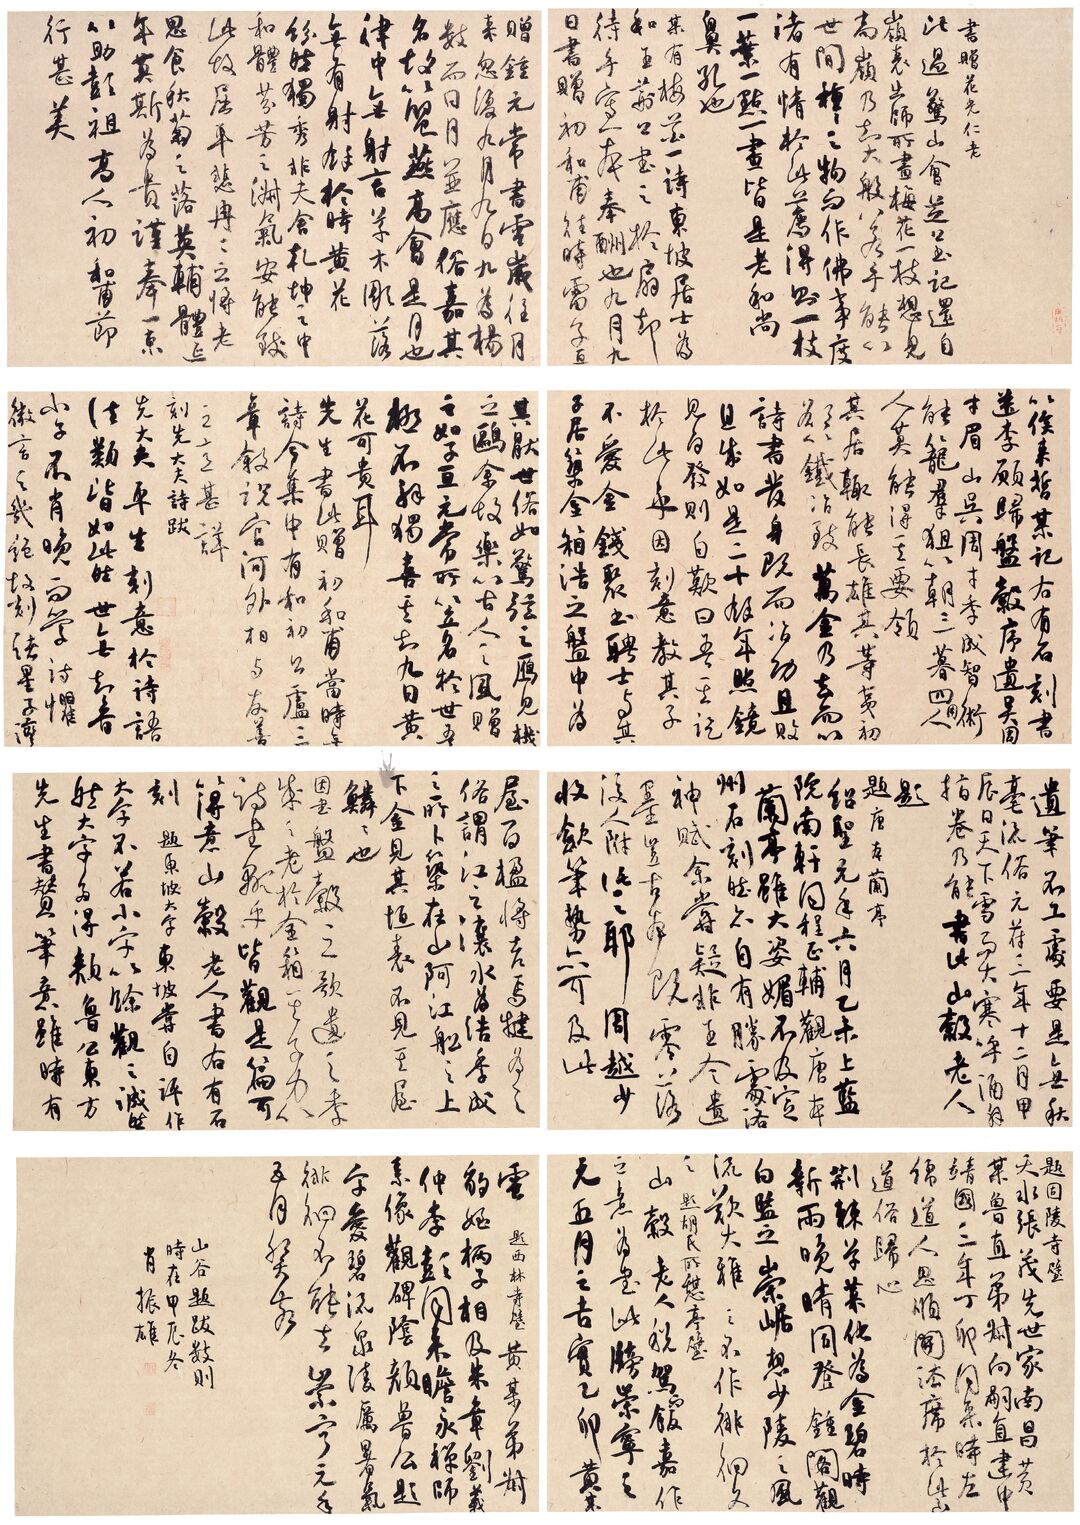 書贈花光仁老
比過鷲山會芝公書記還自
嶺表出師所畫梅花一枝想見
高嶺乃知大般若手能以
世間種種之物而作佛事度
諸有情於此薦得則一枝
一葉一點一畫皆是老和尚
鼻孔也
某有梅花一詩東坡居士為
和王荊公書之於扇却
待手寫一本奉酬也九月九
日書贈初和甫往時
贈鍾元常書云歲往月
來忽復九月九日九為楊
數而日月並應俗嘉其
名故以宴燕高會是月也
律中無射言草木彫落
無有射餘於時黃花
紛然獨秀非夫含乾坤之中
和體芬芳之淑氣安能致
此故屈平悲冉冉之將老
思食秋菊之落英輔體延
年莫斯為貴謹奉一束
以助彭祖高人初和甫節
行甚美
其厭世俗如驚弦之雁見機
之鷗余故樂以古人之風贈
之如子亘元常所以名於世吾
極不獨喜其知九日黃
花可貴耳
先生書此贈初和甫當時
詩今集中有和初公廬三
章敘說官河外相与友善
之意甚詳
刻先大夫詩跋
先大夫平生刻意於詩語
法類皆如此然世無知音
小子不肖晚而學詩懼
微言之幾絕故刻諸星子灣
以俟來哲某記右有石刻書
送李愿歸盤穀序遺吳周
才眉山吳周才季成智術
能籠羣狙以朝三暮四用人
人莫能得其要領
其居輒能長雄其等夷初
以鐵冶致萬金乃去而以
詩書發身既而冶功且敗
且成如是二十餘年照鏡
見白發則自歎曰吾其
於此乎因刻意教其子
不愛金錢聚書聘士与其
子居築金箱浩之盤中為
屋百楹將吉焉揵為之
俗謂江之瀼水為浩季成
之所卜築在山阿江船之上
下金見其垣表不見其屋
鱗鱗也
因書盤穀之歌遺之季
成之老於金箱其子力於
詩書歟乎皆觀是篇可
得意山穀老人書右有石
刻
題東坡大字東坡嘗自評作
大字不若小字以餘觀之誠然
然大字多得顏魯公東方
先生畫贊筆意雖時有
遺筆不工處要是無秋
毫流俗元祐三年十二月甲
辰日天下雪而大寒呼酒解
指卷乃能書此山穀老人
題
題唐本蘭亭
紹聖元年六月乙未上藍
院南軒同程正輔觀唐本
蘭亭雖大姿媚不及定
州石刻然亦自有勝處洛
神賦余嘗疑非王令遺
墨豈古本既零落
後人附託之耶周越少
收斂筆勢亦可及此
題固陵寺壁
天水張茂先世家南昌黃
某魯直弟叔向嗣直建中
靖國二年丁卯同來時左
綿道人思順開法席於此山
道俗歸心
荆棘草萊化為金碧時
新雨晚晴同登鍾閣觀
白鹽之崇崛想少陵之風
流歎大雅之不作徘徊久
之題胡氏所憩亭壁
山穀老人稅駕憩嘉作
之意為書此牓崇寧之
元五月之吉實乙卯黃某
雲
題西林寺壁黃某弟叔
豹姪柄子相及朱章劉羲
仲李彭同來瞻永禪師
素像觀碑陰顏魯公題
字愛碧流泉陵厲暑氣
徘徊不能去崇寧元年
五月癸亥
山谷題跋數則
時在甲辰冬
肖振雄